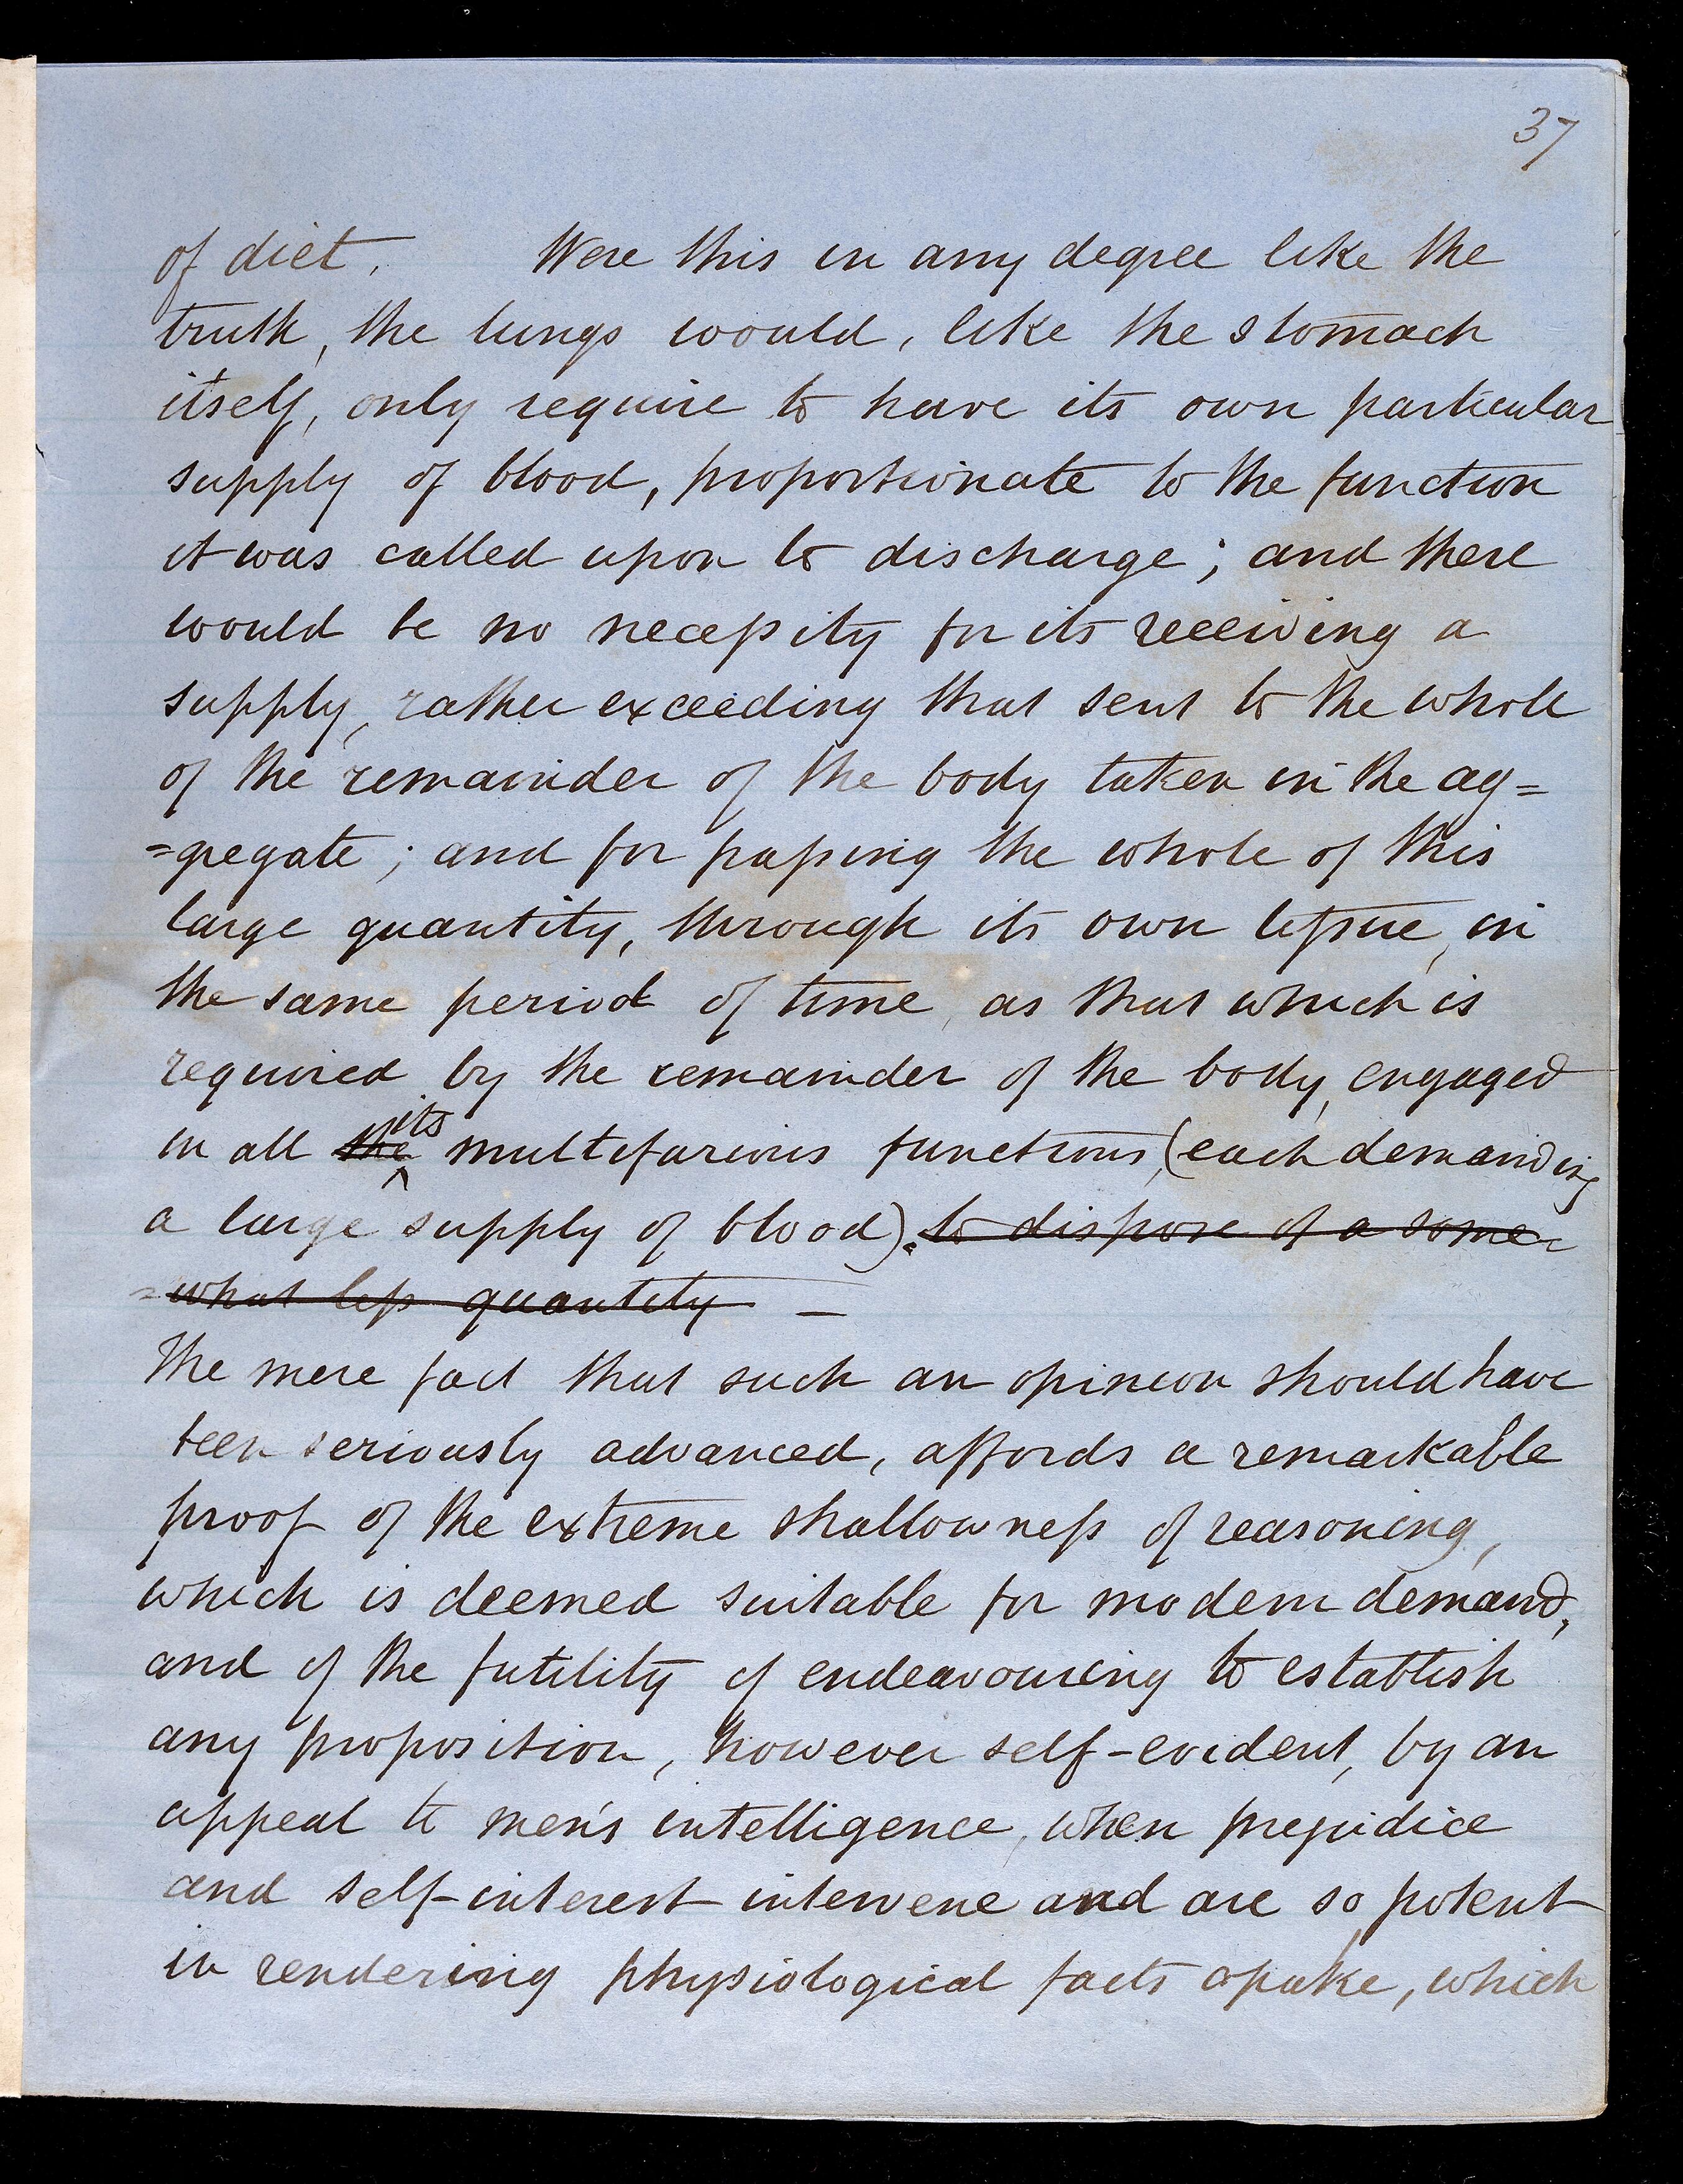 37
of diet. Were this in any degree like the
truth, the lungs would, like the stomach
itself, only require to have its own particular
supply of blood, proportionate to the function
it was called upon to discharge; and there
would be no necessity for its receiving a
supply, rather exceeding that sent to the whole
of the remainder of the body taken in the ag=
=gregate; and for passing the whole of this
large quantity, through its own tissue, in
the same period of time, as that which is
required by the remainder of the body, engaged
in all the its multifarious functions, (each demanding
a large supply of blood). to dispose of a some=
=what less quantity —
The mere fact that such an opinion should have
been seriously advanced, affords a remarkable
proof of the extreme shallowness of reasoning,
which is deemed suitable for modern demand,
and of the futility of endeavouring to establish
any proposition, however self-evident, by an
appeal to men's intelligence, when prejudice
and self-interest intervene and are so potent
in rendering physiological facts opake, which